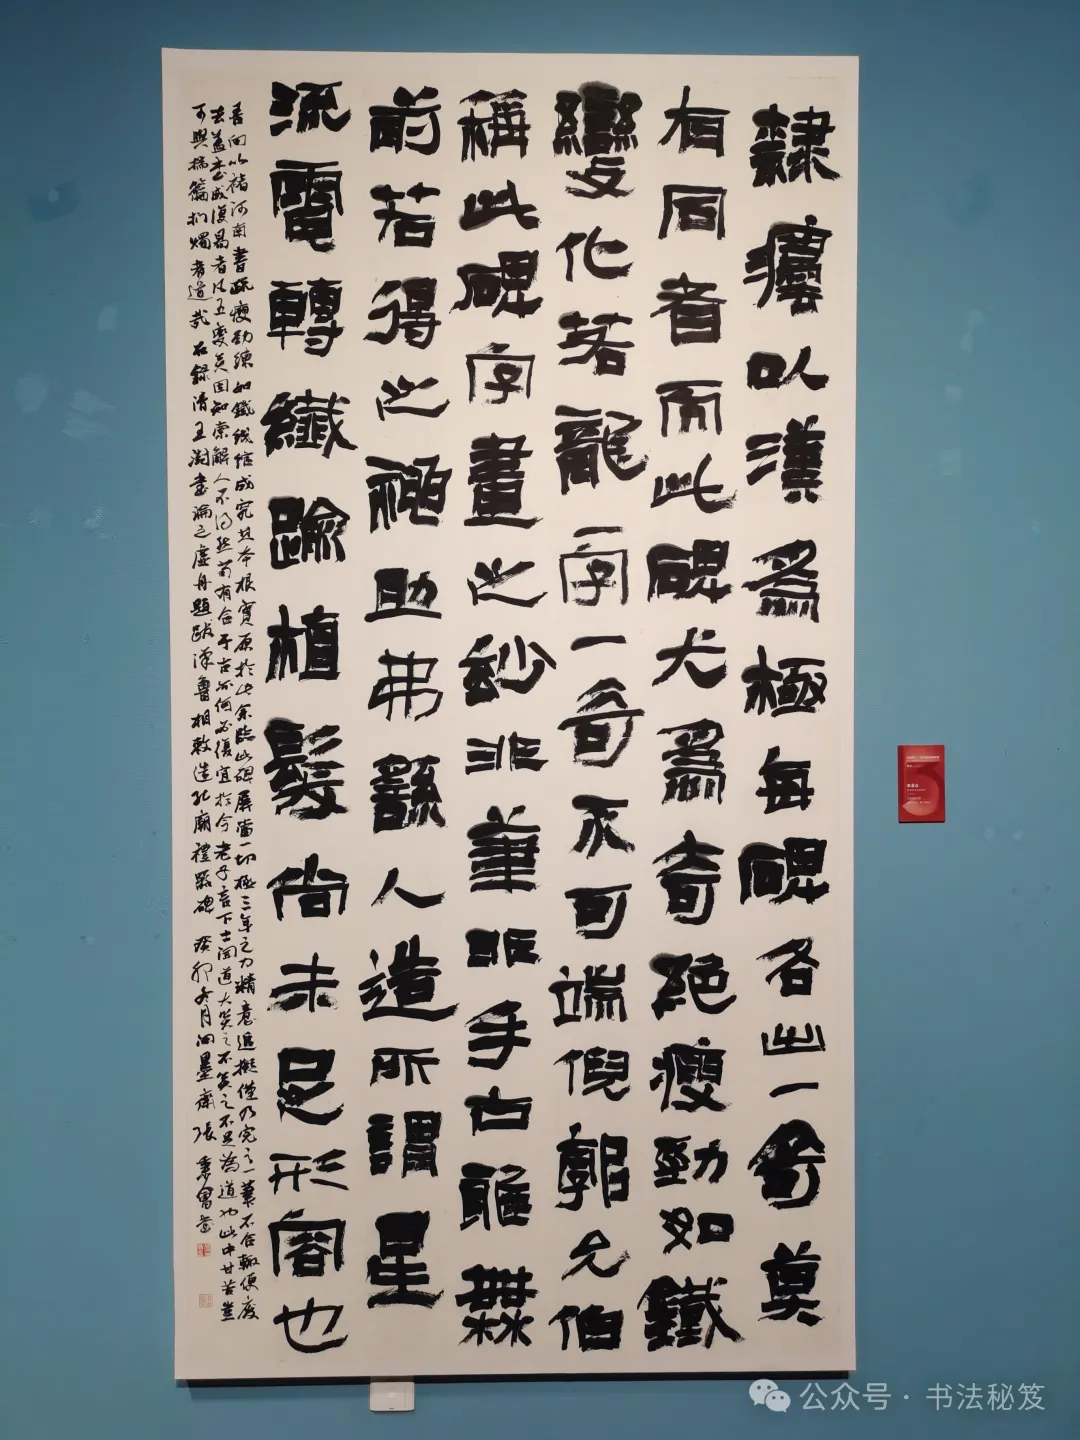 隸𤼭以漢為極每碑各出一奇莫
有同者而此碑尤為奇絕瘦勁如鐵
變化若龍一字一奇不可端倪郭允伯
稱此碑字畫之妙非筆非手古雅無
前若得之神助弗繇人造所謂星
流電轉纖踰植髮尚未足形容也
吾向以褚河南書疏瘦勁練如鐵線結成究其本根實原於此余臨此碑屏當一切極三年之力精意追擬僅乃完之一筆不合輒便廢
去蓋未成復易者凡五變矣固知索解人不得然苟有合于古亦何必復宜於今老子言下士聞道大笑之不笑之不足為道也此中甘苦豈
可與捫籥扣燭者道哉 右錄清王澍書論之虛舟題跋漢魯相敕造孔廟禮器碑 癸卯冬月 墨齋張秉書
公众号·书法秘笈